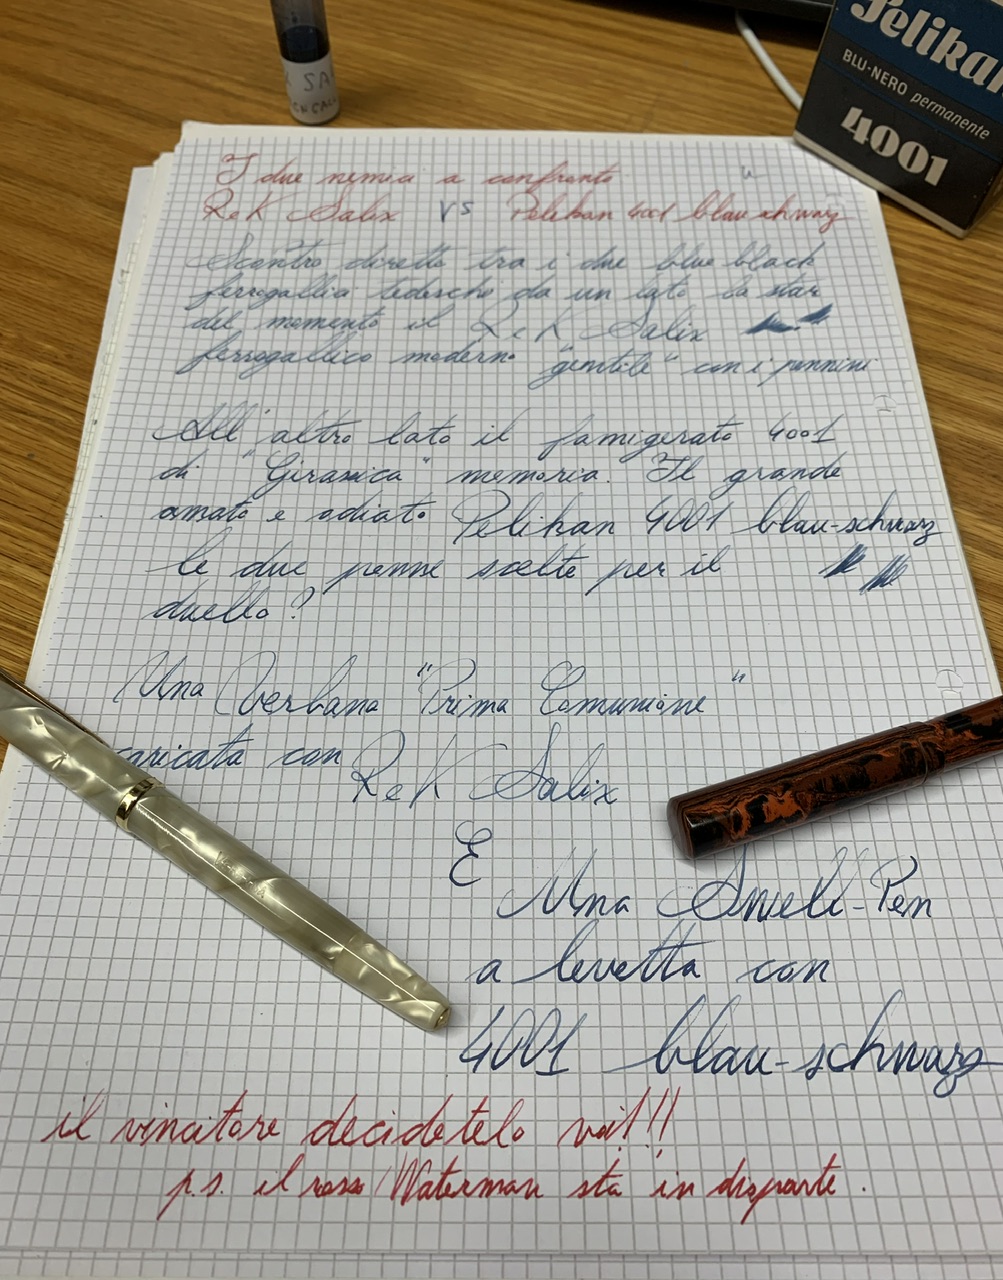 SA
Pelikan
BLU-NERO permanente
4001
I due nemici a confronto
R e K Salix VS Pelikan 4001 blau schwarz
Scontro diretto tra i due blue black
ferrogallici tedeschi da un lato la star
del momento il R e K Salix
ferrogallico moderno "gentile" con i pennini
All'altro lato il famigerato 4001
di "Girassica" memoria. Il grande
amato e odiato Pelikan 4001 blau-schwarz
le due penne scelte per il
duello?
Una Verbana "Prima Comunione"
caricata con R e K Salix
E
Una Swell-Pen
a levetta con
4001 blau-schwarz
il vincitore decidetelo voi!!!
p.s. il rosso Waterman sta in disparte.